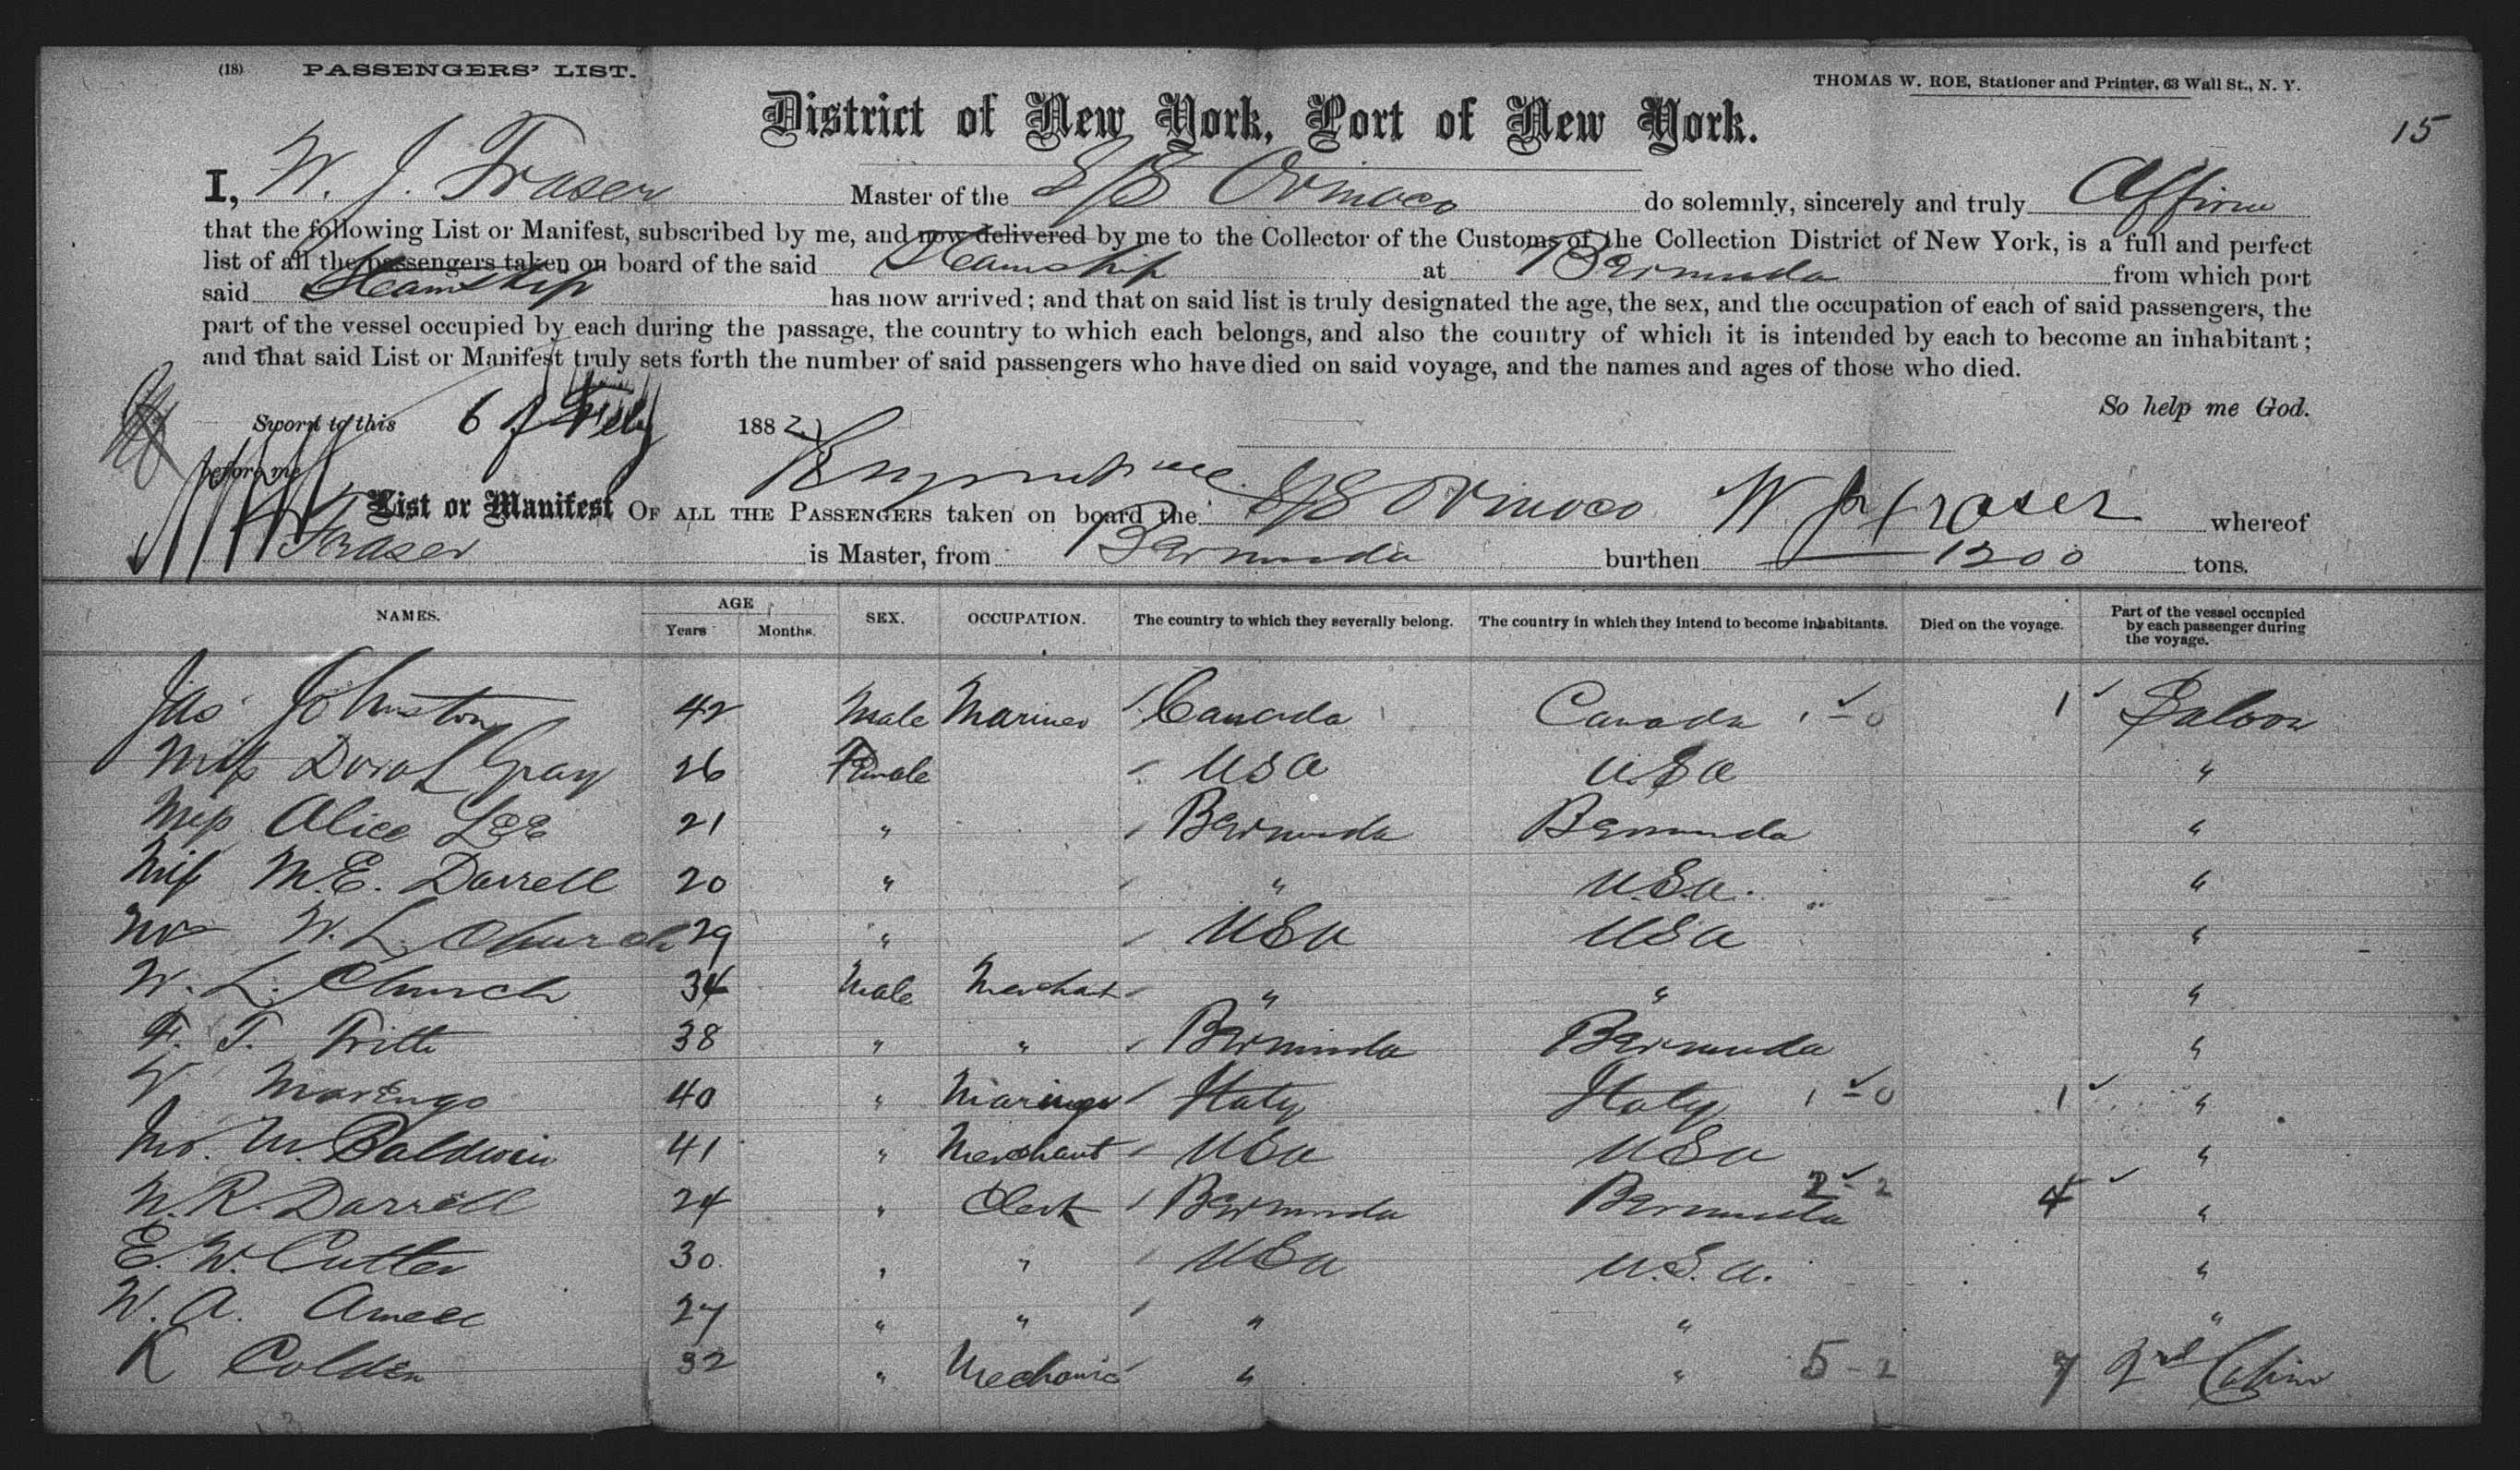 (18) PASSENGERS' LIST.
THOMAS W. ROE, Stationer and Printer, 63 Wall St., N. Y.
15
District of New York, Port of New York.
I, W. J. Fraser Master of the S/S Orinoco do solemnly, sincerely and truly Affirm
that the following List or Manifest, subscribed by me, and now delivered by me to the Collector of the Customs of the Collection District of New York, is a full and perfect
list of all the passengers taken on board of the said Steamship at Bermuda from which port
said Steamship has now arrived; and that on said list is truly designated the age, the sex, and the occupation of each of said passengers, the
part of the vessel occupied by each during the passage, the country to which each belongs, and also the country of which it is intended by each to become an inhabitant;
and that said List or Manifest truly sets forth the number of said passengers who have died on said voyage, and the names and ages of those who died.
So help me God.
Sworn to this 6 of Feby 1882
before me
W Fraser
List or Manifest OF ALL THE PASSENGERS taken on board the S/S Orinoco whereof
Fraser is Master, from Bermuda burthen 1200 tons.
NAMES. AGE Years Months. SEX. OCCUPATION. The country to which they severally belong. The country in which they intend to become inhabitants. Died on the voyage. Part of the vessel occupied by each passenger during the voyage.
Jas Johnston 42 Male Mariner Canada Canada 1-0 1 Saloon
Miss Gray 26 Female USA USA "
Miss Alice Lee 21 " Bermuda Bermuda "
Miss M.E. Darrell 20 " " U.S.a. "
Mrs W. L. Church 29 " USA USA "
W. L. Church 34 Male Merchant " " "
F. T. Frith 38 " " Bermuda Bermuda "
V Marengo 40 " Italy Italy 1-0 1 "
Mr. M. Baldwin 41 " Merchant USA USA "
N. R. Darrell 24 " Clerk Bermuda Bermuda 2-2 4 "
E. W. Cutler 30 " " USA U.S.a. "
W. A. 27 " " " " "
K Colden 32 " Mechanic " " 5-2 7 2nd Cabin